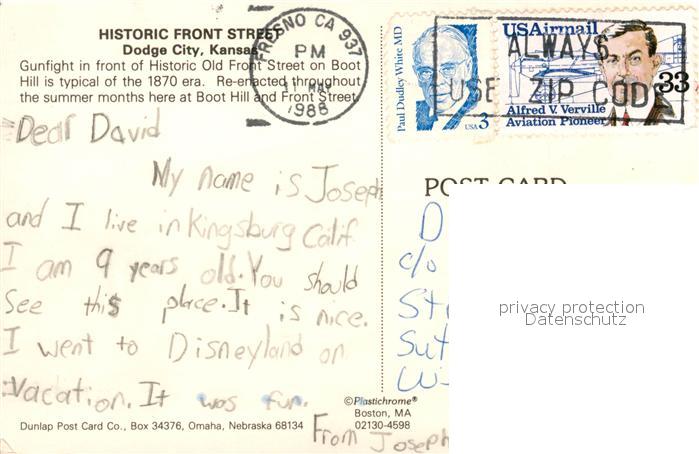 HISTORIC FRONT STREET
Dodge City, Kansas
Gunfight in front of Historic Old Front Street on Boot
Hill is typical of the 1870 era. Re-enacted throughout
the summer months here at Boot Hill and Front Street.
FRESNO CA 937
PM
11 MAY
1988
Paul Dudley White MD
USA 3
USAirmail
33
Alfred V. Verville
Aviation Pioneer
ALWAYS
USE ZIP CODE
Dear David
My name is Joseph
and I live in Kingsburg Calif.
I am 9 years old. You should
See this place. It is nice.
I went to Disneyland on
vacation. It was fun.
From Joseph
POST CARD
D
c/o
St
Sut
W
privacy protection
Datenschutz
©Plastichrome®
Boston, MA
02130-4598
Dunlap Post Card Co., Box 34376, Omaha, Nebraska 68134